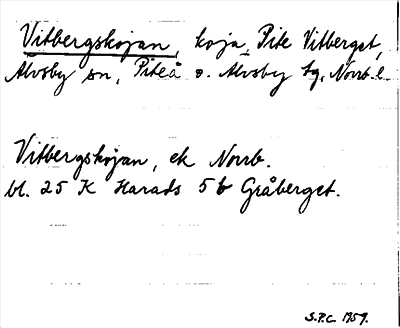 Vitbergskojan, koja, Pite Vitberget,
Älvsby sn, Piteå o. Älvsby tg, Norrb. l.
Vitbergskojan, ek Norrb.
bl. 25 K Harads 5 b Gråberget.
S.P.C. 1959.